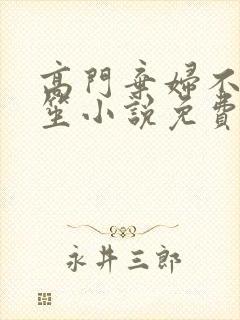 高門棄婦不
笙小說免費
永井三郎